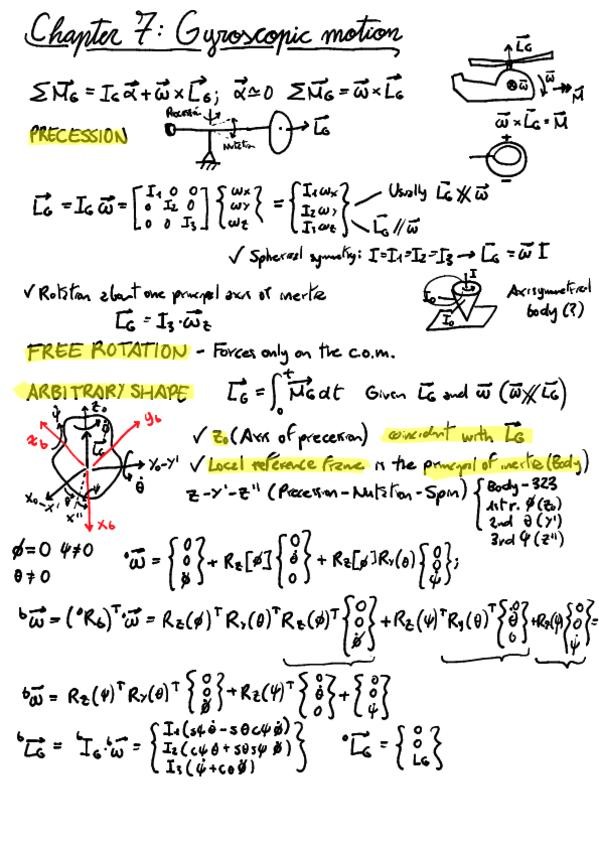 Chapter 7: Gyroscopic motion
ΣM⃗_G = I_G α⃗ + ω⃗ × L⃗_G; α⃗ ≃ 0 ΣM⃗_G = ω⃗ × L⃗_G
L⃗_G
ω⃗
ω⃗
M⃗
ω⃗ × L⃗_G = M⃗
+
−
PRECESSION
Nutation
L⃗_G
L⃗_G = I_G ω⃗ = [I1 0 0; 0 I2 0; 0 0 I3] {ωx; ωy; ωz} = {I1ωx; I2ωy; I3ωz}
Usually L⃗_G ∦ ω⃗
L⃗_G // ω⃗
✓ Spherical symmetry: I=I1=I2=I3 → L⃗_G = ω⃗ I
✓ Rotation about one principal axis of inertia
L⃗_G = I3·ω⃗z
I
I0
I0
Axisymmetrical
body (?)
FREE ROTATION - Forces only on the c.o.m.
ARBITRARY SHAPE L⃗_G = ∫₀ᵗ M⃗_G dt Given L⃗_G and ω⃗ (ω⃗ ∦ L⃗_G)
z0
yb
zb
L⃗_G
y0-y'
θ̇
x0-x'
x''
xb
✓ z0 (Axis of precession) coincident with L⃗_G
✓ Local reference frame is the principal of inertia (Body)
z-y'-z'' (Precession-Nutation-Spin)
{Body-323
1str. φ(z0)
2nd θ(y')
3rd ψ(z'')
φ=0 ψ≠0
θ≠0
⁰ω⃗ = {0; 0; φ̇} + Rz[φ]{0; θ̇; 0} + Rz[φ]Ry(θ){0; 0; ψ̇};
ᵇω⃗ = (⁰Rb)ᵀ·⁰ω⃗ = Rz(φ)ᵀRy(θ)ᵀRz(φ)ᵀ{0; 0; φ̇} + Rz(ψ)ᵀRy(θ)ᵀ{0; θ̇; 0} + Rz(ψ){0; 0; ψ̇} =
ᵇω⃗ = Rz(ψ)ᵀRy(θ)ᵀ{0; 0; φ̇} + Rz(ψ)ᵀ{0; θ̇; 0} + {0; 0; ψ̇}
ᵇL⃗_G = ᵇI_G·ᵇω⃗ = {I1(sψθ̇-sθcψφ̇); I2(cψθ̇+sθsψφ̇); I3(ψ̇+cθφ̇)} ⁰L⃗_G = {0; 0; L_G}